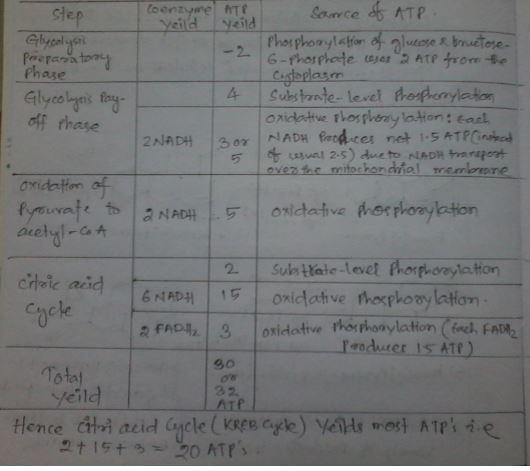 Step Coenzyme Yeild ATP Yeild Source of ATP.
Glycolysis Preparatory Phase -2 Phosphorylation of glucose & fructose-
6-phosphate uses 2 ATP from the
Cytoplasm
Glycolysis Pay-
off Phase 4 Substrate-level Phosphorylation
2NADH 3 or 5 Oxidative Phosphorylation: Each
NADH Produces net 1.5 ATP (instead
of usual 2.5) due to NADH transport
over the mitochondrial membrane
Oxidation of
Pyruvate to
acetyl-CoA 2 NADH 5 oxidative phosphorylation
Citric acid
Cycle 2 Substrate-level Phosphorylation
6 NADH 15 oxidative Phosphorylation.
2 FADH2 3 oxidative Phosphorylation (Each FADH2
Produces 1.5 ATP)
Total
Yeild 30
or
32
ATP
Hence Citric acid Cycle (KREB Cycle) Yeilds most ATP's i.e
2+15+3 = 20 ATP's.